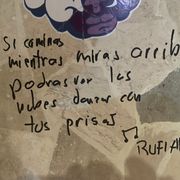 Si caminas
mientras miras arrib
podras ver las
nubes danzar con
tus prisas
RUFIA